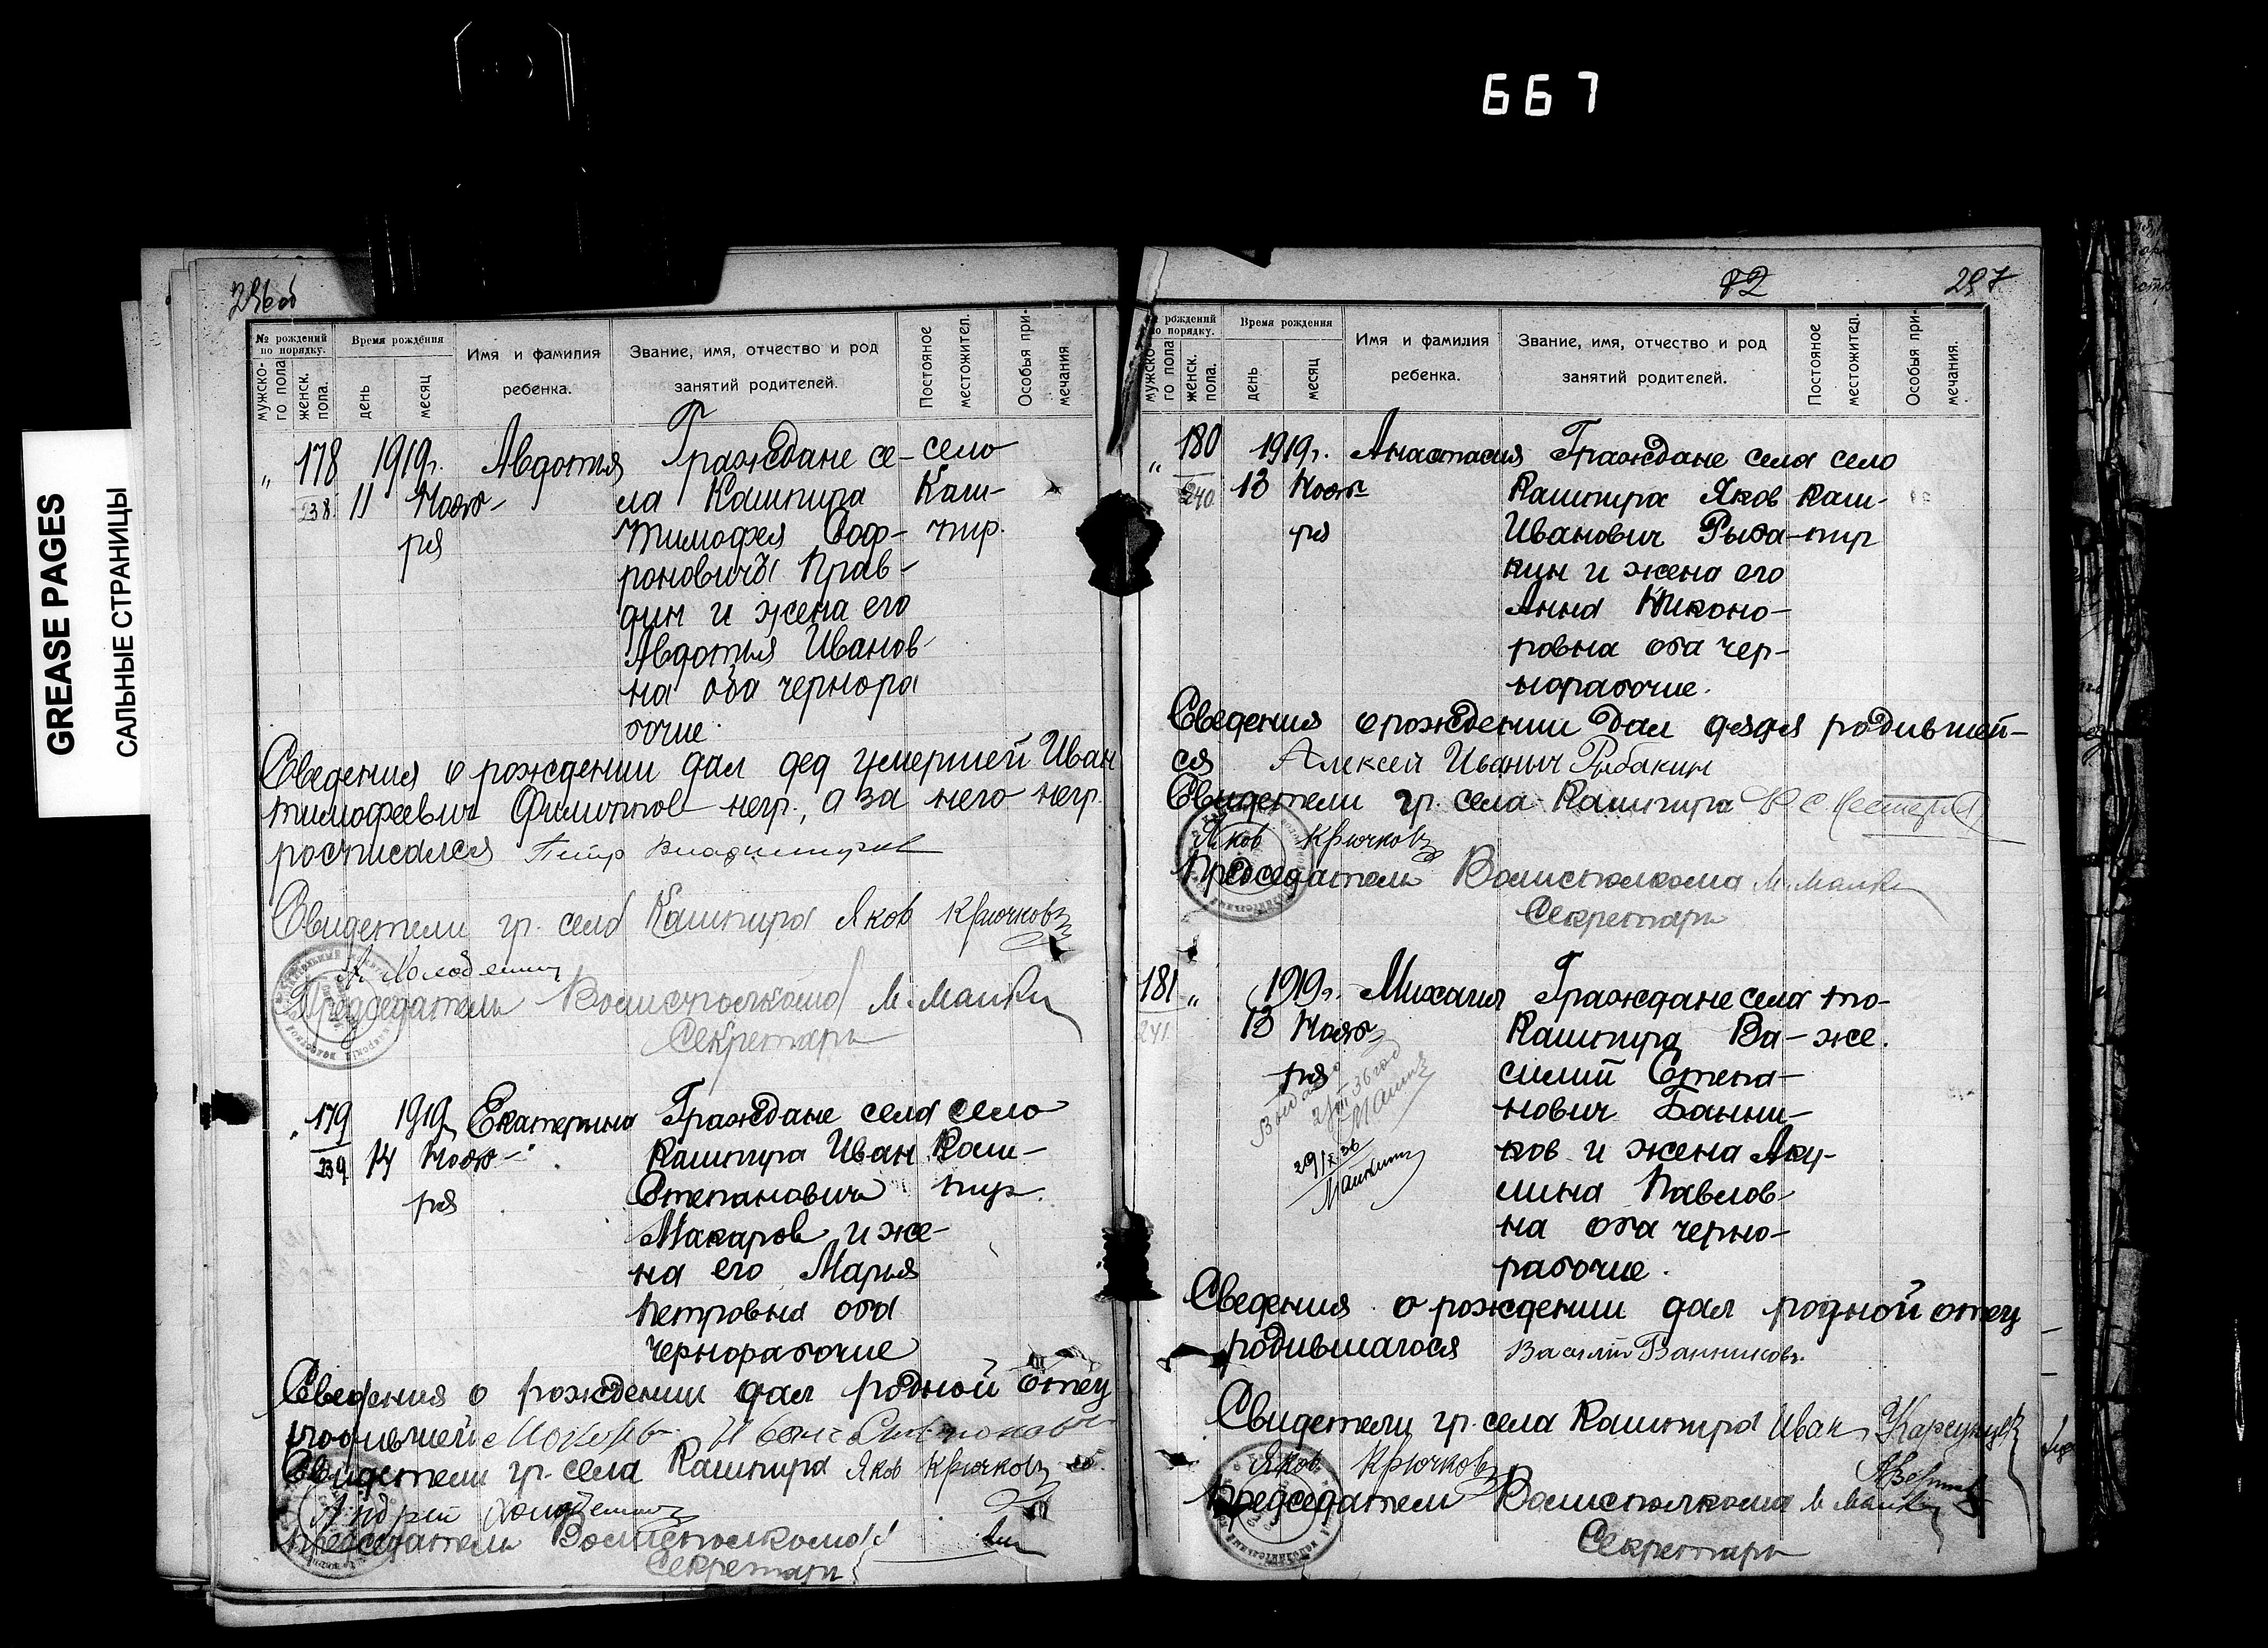 667
GREASE PAGES
САЛЬНЫЕ СТРАНИЦЫ
296об
№ рождений по порядку.
мужско-го пола
женск. пола.
Время рождения
день
месяц
Имя и фамилия ребенка.
Звание, имя, отчество и род занятий родителей.
Постояное местожител.
Особыя при-мечания
„ 178 1919г. Авдотья Граждане се- село
238. 11 Нояб- ла Кашпира Каш-
ря Тимофея Соф- пир.
роновичъ Прав-
дин и жена его
Авдотья Иванов-
на оба чернора
бочие.
Сведения о рождении дал дед умершей Иван
Тимофеевич Филиппов негр., а за него негр.
росписался Петр Владимиров
Свидетели гр. села Кашпира Яков Крючковъ
Председатель Волисполкома М. Маики
Секретарь
„ 179 1919г. Екатерина Граждане села село
239 14 Нояб- Кашпира Иван Каш-
ря Степанович пир.
Макаров и же-
на его Марья
Петровна оба
чернорабочие
Сведения о рождении дал родной отец
Свидетели гр. села Кашпира Яков Крючковъ
Андрей
Председатель Волисполкома
Секретарь
82 297
№ рождений по порядку.
мужско-го пола
женск. пола.
Время рождения
день
месяц
Имя и фамилия ребенка.
Звание, имя, отчество и род занятий родителей.
Постояное местожител.
Особыя при-мечания.
„ 180 1919г. Анастасия Граждане села село
240 13 Нояб- Кашпира Яков Каш-
ря Иванович Рыба- пир
кин и жена его
Анна Никоно-
ровна оба чер-
норабочие.
Сведения о рождении дал дядя родившей-
ся Алексей Иваныч Рыбакин
Свидетели гр. села Кашпира
Яков Крючковъ
Председатель Волисполкома М. Маики
Секретарь
181 „ 1919г. Михаил Граждане села то-
241 13 Нояб- Кашпира Ва- же.
ря силий Степа-
нович Банни-
ков и жена Аку-
лина Павлов-
на оба черно-
рабочие.
29/X 36
Сведения о рождении дал родной отец
родившагося Василий Банниковъ.
Свидетели гр. села Кашпира Иван
Яков Крючковъ
Председатель Волисполкома М Маики
Секретарь